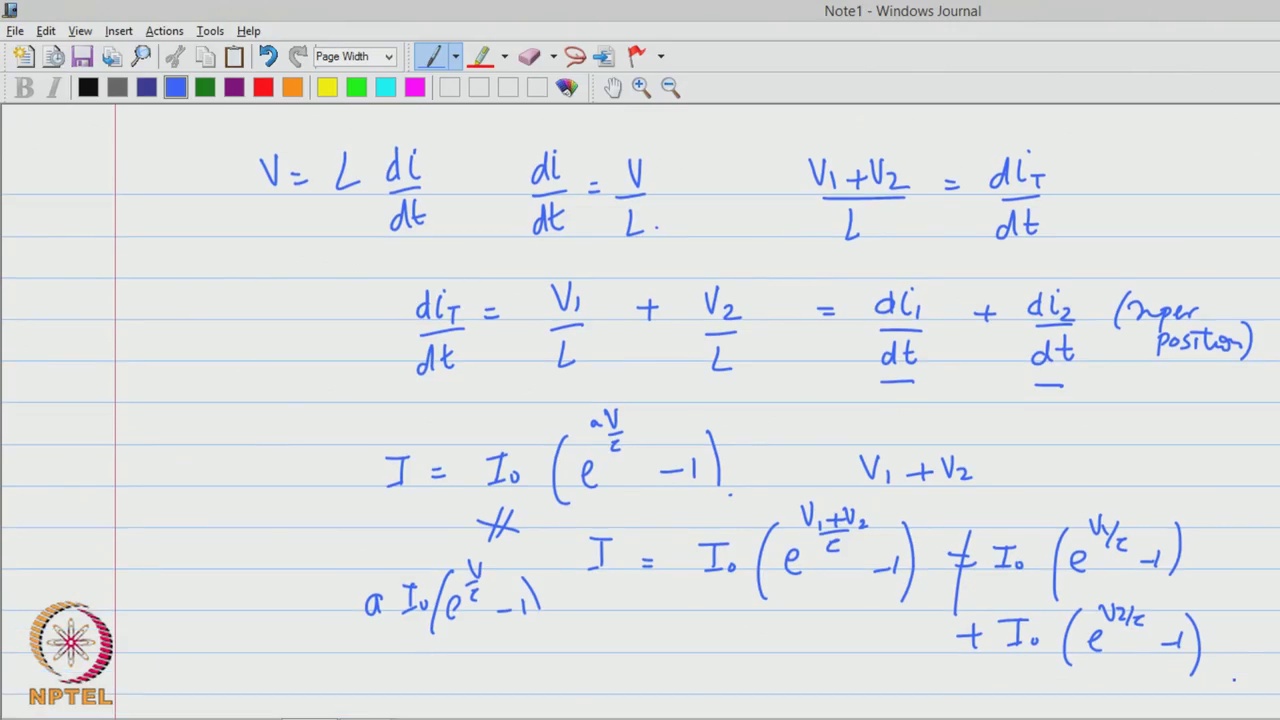 Note1 - Windows Journal
File Edit View Insert Actions Tools Help
Page Width
B I
V = L di/dt   di/dt = V/L.   (V₁+V₂)/L = di_T/dt
di_T/dt = V₁/L + V₂/L = di₁/dt + di₂/dt (super
position)
I = I₀ (e^(aV/τ) -1).   V₁ + V₂
≠   I = I₀ (e^((V₁+V₂)/τ) -1) ≠ I₀ (e^(V₁/τ) -1)
a I₀ (e^(V/τ) -1)   + I₀ (e^(V2/τ) -1).
NPTEL